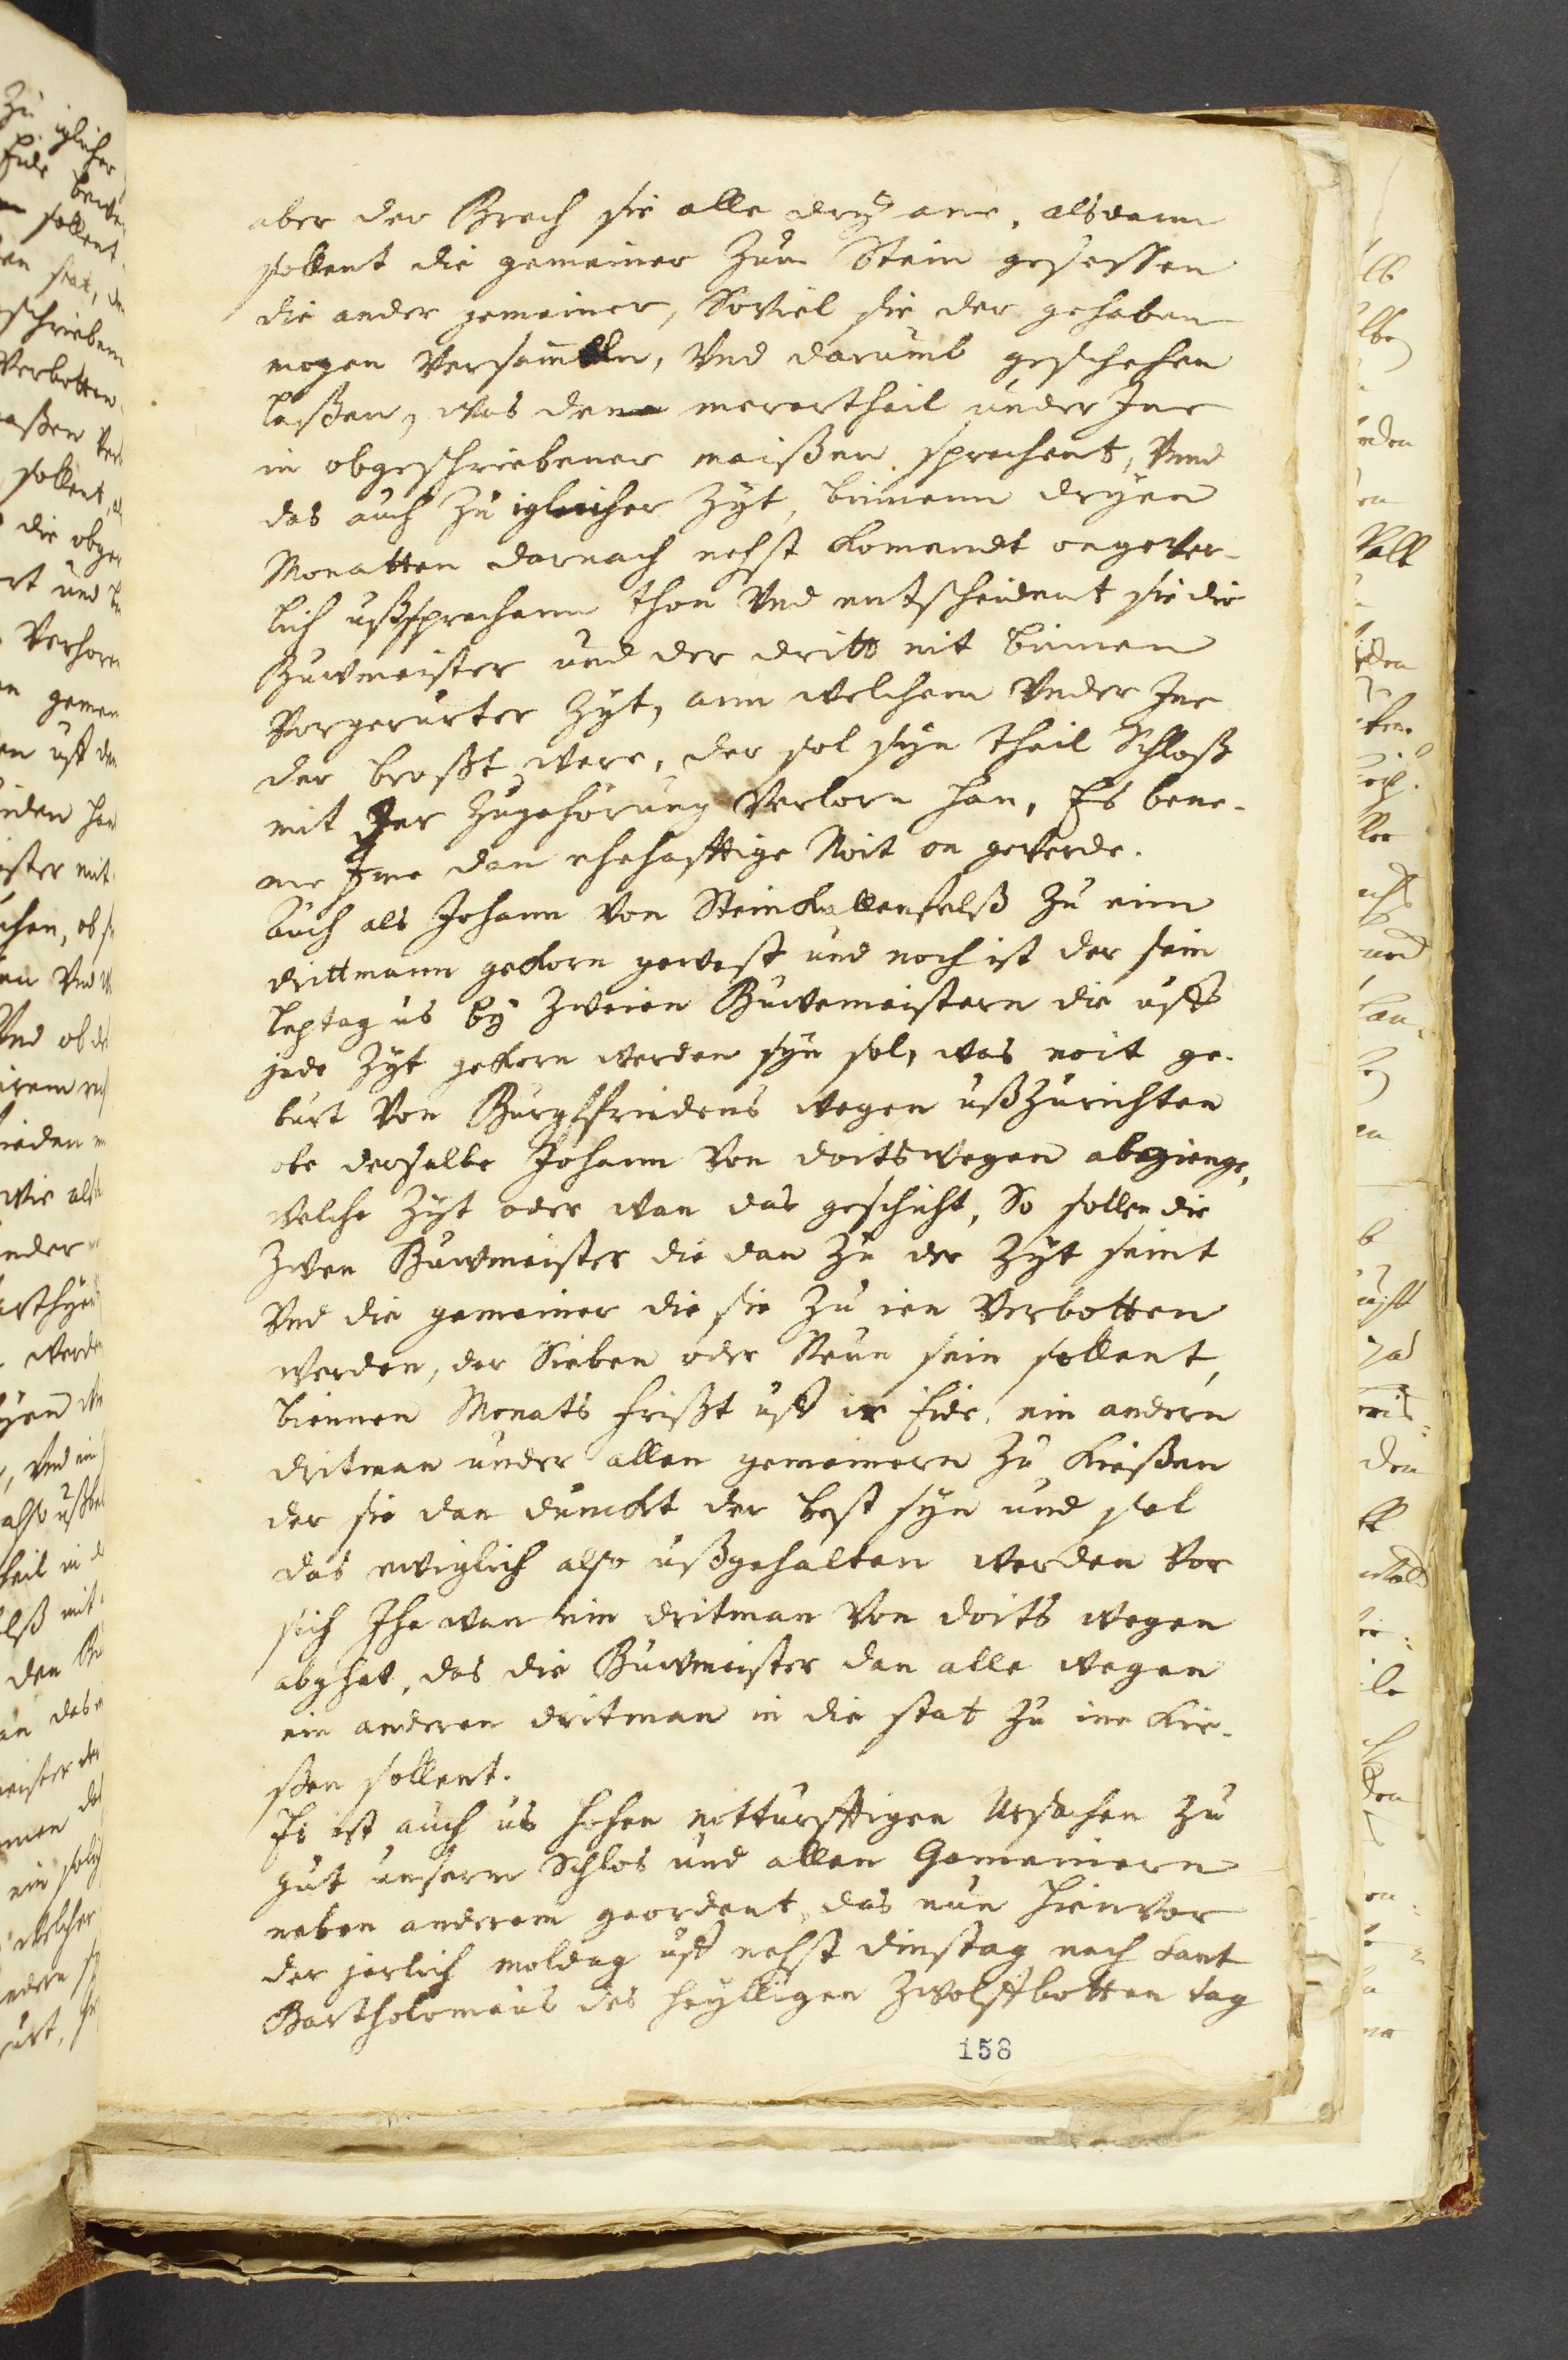 aber der Brech sie alle dry ane, alsdann
sollent die gemeiner Zum Stein gesessen
die ander gemeiner, Soviel sie der gehaben
mogen Versamblen, Vnd darumb geschehen
laßen, was dem merertheil under Ine
in obgeschriebener maißen sprechent, Vnnd
das auch Zu iglicher Zyt, binnenn dryen
Monatten darnach nehst komendt ongever-
lich ußsprechenn thon Vnd entscheident sie die
Buwmeister und der dritt nit binnen
Vorgerurter Zyt, ann welchem Vnder Ine
der brost were, der sol syn theil Schloß
mit Irer Zugehörung Verlorn han, Es bene-
me Ime dan ehehafftige Noit on geverde.
Auch als Johann Von Steinkallenfelß Zu eim
drittmann gekorn gewest und noch ist der sein
leptag us by Zweien Buwemeistern die uff
jede Zyt gekorn werden syn sol, was noit ge-
burt Von Burgffriedens wegen ußZurichten
obe derselbe Johann Von doitswegen abegienge,
welche Zyt oder wan das geschicht, So sollen die
Zwen Buwmeister die dan Zu der Zyt seint
Vnd die gemeiner die sie Zu ien Verbotten
werden, der Sieben oder Neun sein sollent,
biennen Monats frißt uff ir Eide, ein andern
dritman under allen gemeinern Zu kießen
der sie dan dunckt der best syn und sol
das ewiglich also ußgehalten werden Vor
sich Ihe wan ein dritman Von doits wegen
abghet, das die Buwmeister dan alle wegen
ein anderen dritman in die stat Zu ine kie-
ßen sollent.
Es ist auch us hohen notturfftigen Ursachen Zu
gut unserm Schlos und allen Gemeinern
neben anderem geordent, das nun hienvor
der jerlich moldag uff nehst dinstag nach Sant
Bartholomeus des heylligen Zwolffbotten tag
158